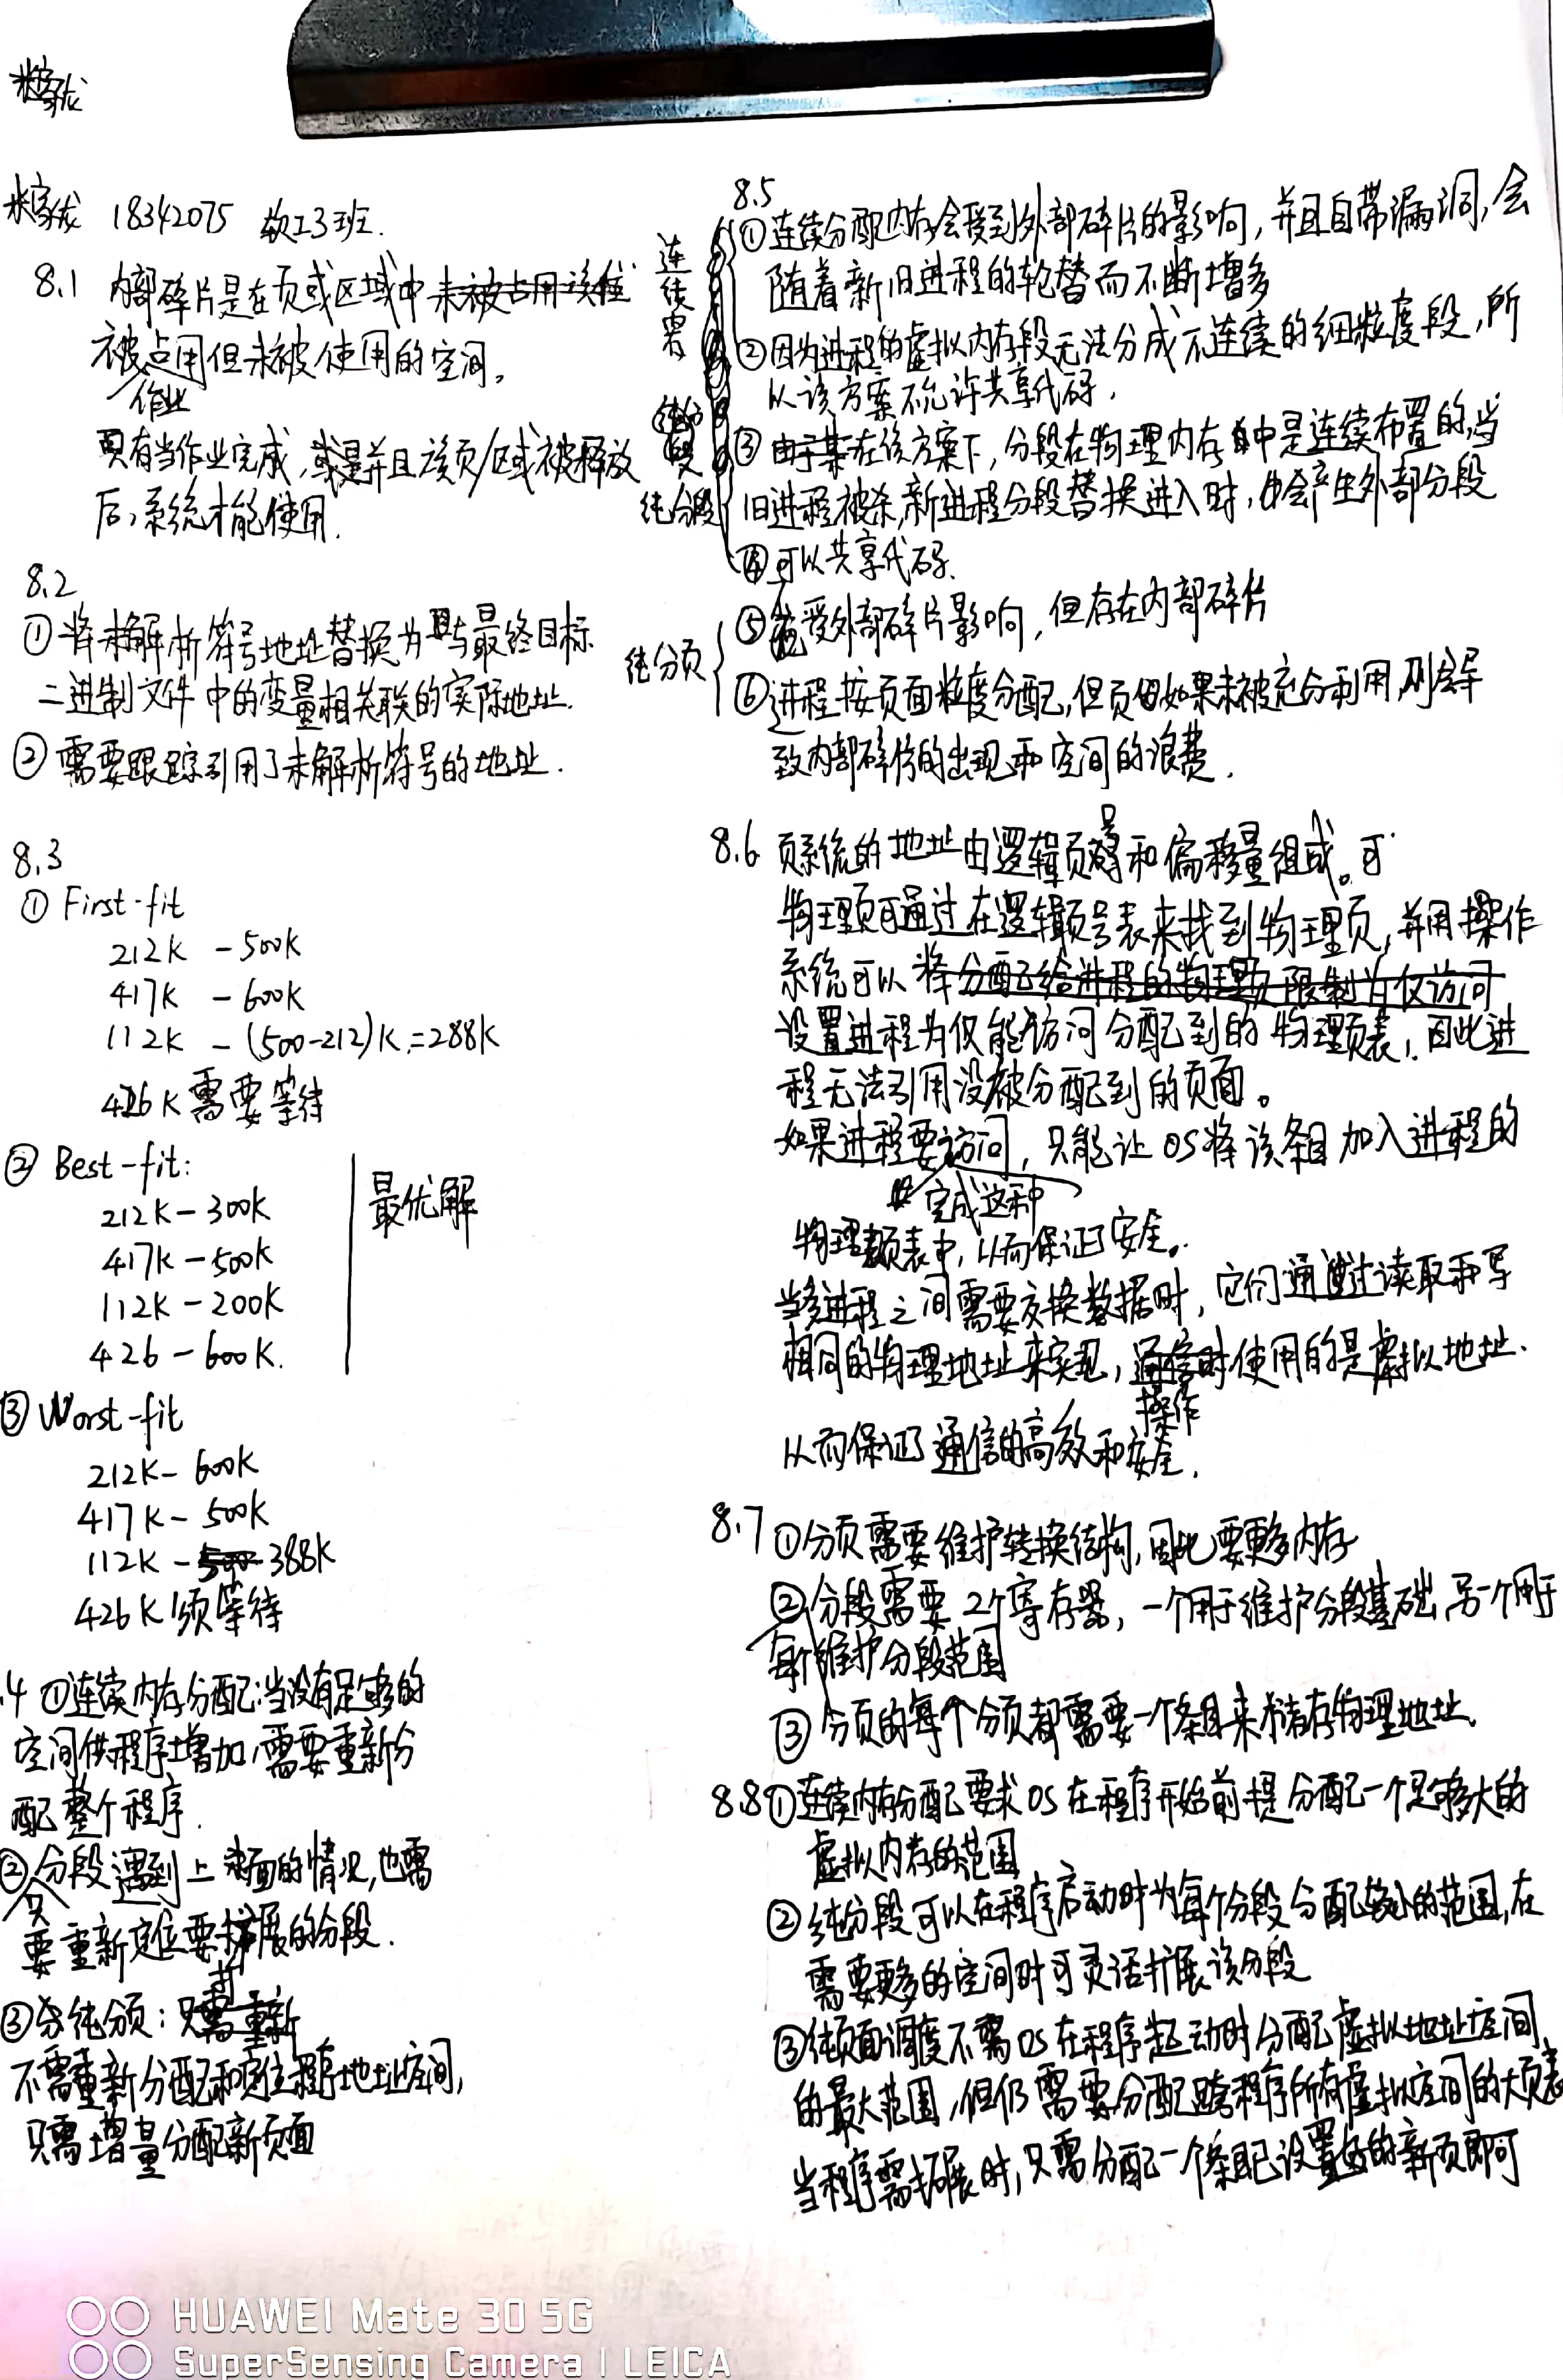 18342075 软工3班.
8.1 内部碎片是在页或区域中未被占用该位
被作业占用但未被使用的空间。
只有当作业完成,或是并且该页/区域被释放
后,系统才能使用.
8.2
① 将未解析符号地址替换为与最终目标
二进制文件中的变量相关联的实际地址.
② 需要跟踪引用了未解析符号的地址.
8.3
① First-fit
212K - 500K
417K - 600K
112K - (500-212)K=288K
426K 需要等待
② Best-fit:
212K - 300K
417K - 500K
112K - 200K
426 - 600K.
最优解
③ Worst-fit
212K - 600K
417K - 500K
112K - 500 388K
426K 须等待
.4 ①连续内存分配:当没有足够的
空间供程序增加,需要重新分
配整个程序.
②分段遇到上面的情况,也只需
要重新定位要扩展的分段.
③纯分页:只需重新
不需重新分配和定位程序地址空间,
只需增量分配新页面
8.5
连续需
①连续分配内存会受到外部碎片的影响,并且自带漏洞,会
随着新旧进程的轮替而不断增多
②因为进程的虚拟内存段无法分成不连续的细粒度段,所
以该方案不允许共享代码.
纯分段
③由于某在该方案下,分段在物理内存中是连续布置的,当
旧进程被杀,新进程分段替换进入时,会产生外部分段
④可以共享代码.
纯分页
⑤受外部碎片影响,但存在内部碎片
⑥进程按页面粒度分配,但页如果未被充分利用,则会导
致内部碎片的出现和空间的浪费.
8.6 页系统的地址由逻辑页号和偏移量组成。可
物理页可通过在逻辑页号表来找到物理页,并用操作
系统可以将分配给进程的物理页限制为仅访问
设置进程为仅能访问分配到的物理页表,因此进
程无法引用没被分配到的页面。
如果进程要完成这种访问,只能让OS将该条目加入进程的
物理页表中,从而保证了安全.
当多进程之间需要交换数据时,它们通过读取和写
相同的物理地址来实现,通信时操作使用的是虚拟地址.
从而保证了通信的高效和安全.
8.7 ①分页需要维护转换结构,因此要更多内存
②每个分段需要2个寄存器,一个用于维护分段基础,另一个用于
维护分段范围
③分页的每个分页都需要一个条目来储存物理地址.
8.8 ①连续内存分配要求OS在程序开始前提分配一个足够大的
虚拟内存的范围
②纯分段可以在程序启动时为每个分段分配较小的范围,在
需要更多的空间时可灵活扩展该分段
③纯页面调度不需OS在程序起动时分配虚拟地址空间
的最大范围,但仍需要分配跨程序所有虚拟空间的大页表
当程序需拓展时,只需分配一个条目已设置好的新页即可
HUAWEI Mate 30 5G
SuperSensing Camera | LEICA